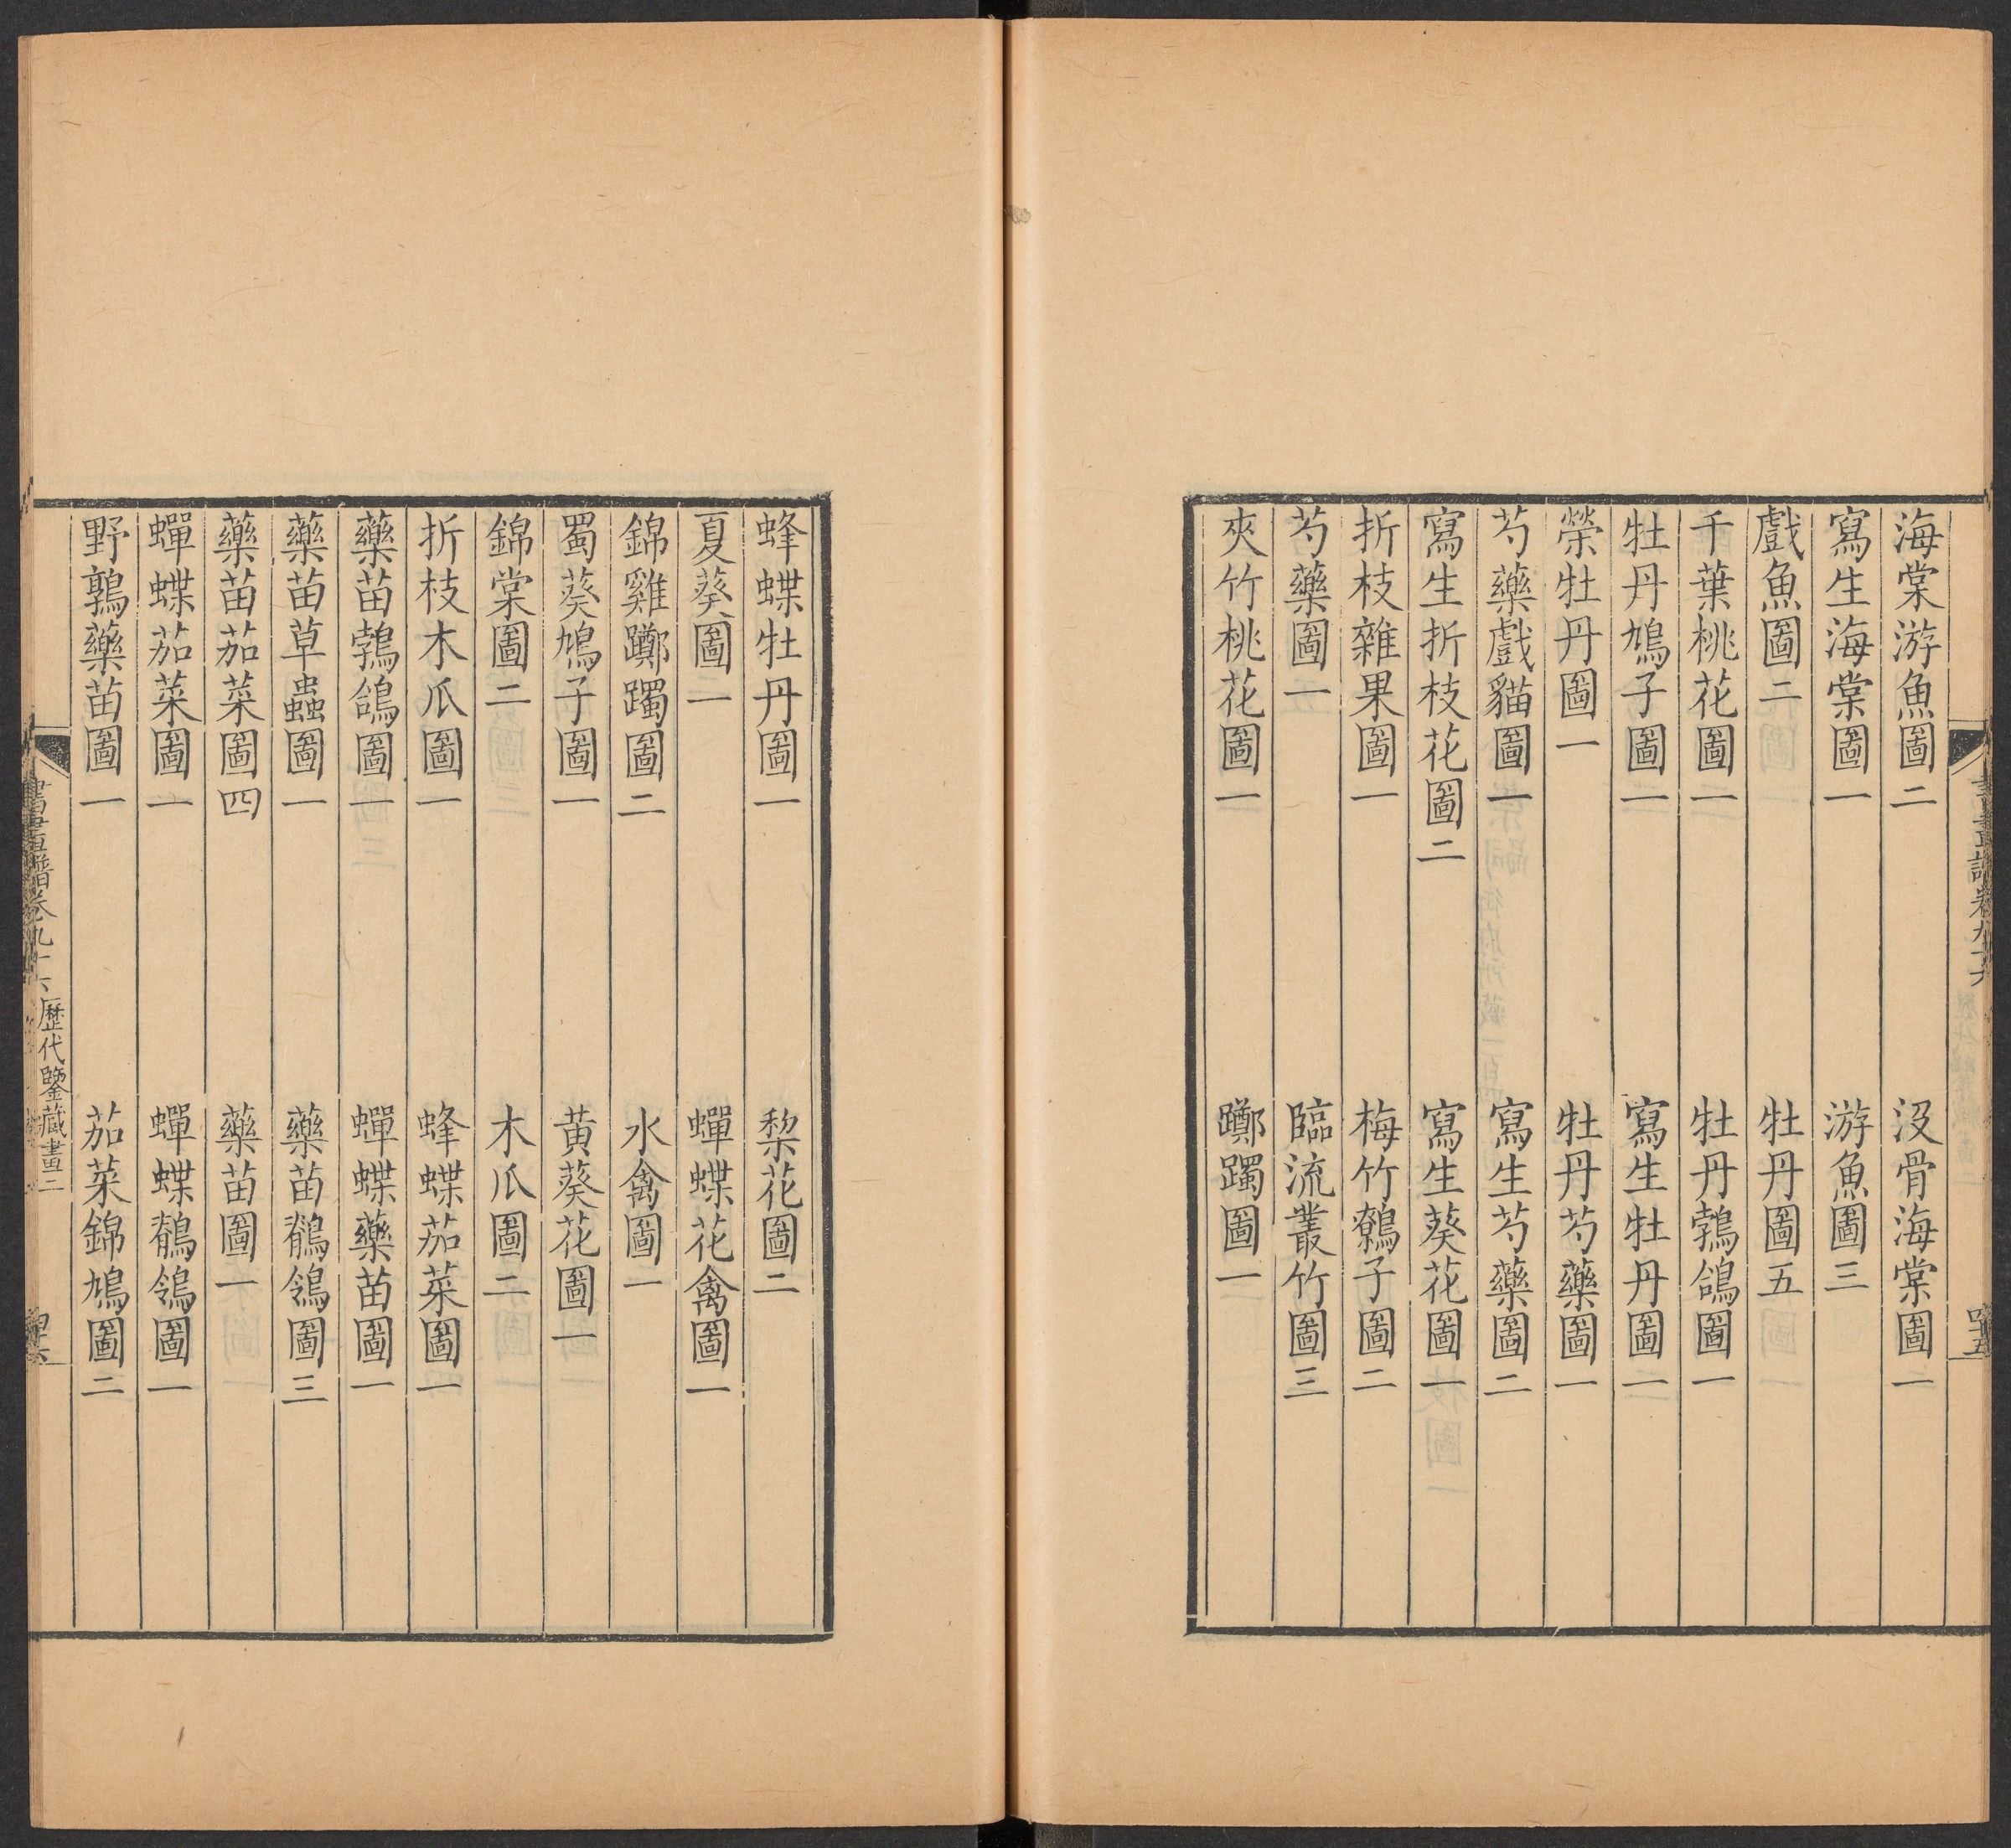 海棠游魚圖二　沒骨海棠圖一
寫生海棠圖一　游魚圖三
戲魚圖二　牡丹圖五
千葉桃花圖一　牡丹鵓鴿圖一
牡丹鳩子圖一　寫生牡丹圖一
榮牡丹圖一　牡丹芍藥圖一
芍藥戲貓圖一　寫生芍藥圖二
寫生折枝花圖二　寫生葵花圖一
折枝雜果圖一　梅竹鷯子圖二
芍藥圖一　臨流叢竹圖三
夾竹桃花圖一　躑躅圖一
蜂蝶牡丹圖一　梨花圖二
夏葵圖一　蟬蝶花禽圖一
錦雞躑躅圖二　水禽圖一
蜀葵鳩子圖一　黃葵花圖一
錦棠圖二　木瓜圖二
折枝木瓜圖一　蜂蝶茄菜圖一
藥苗鵓鴿圖一　蟬蝶藥苗圖一
藥苗草蟲圖一　藥苗鶺鴒圖三
藥苗茄菜圖四　藥苗圖一
蟬蝶茄菜圖一　蟬蝶鶺鴒圖一
野鶉藥苗圖一　茄菜錦鳩圖二
書畫譜卷九十六　歷代鑒藏畫二